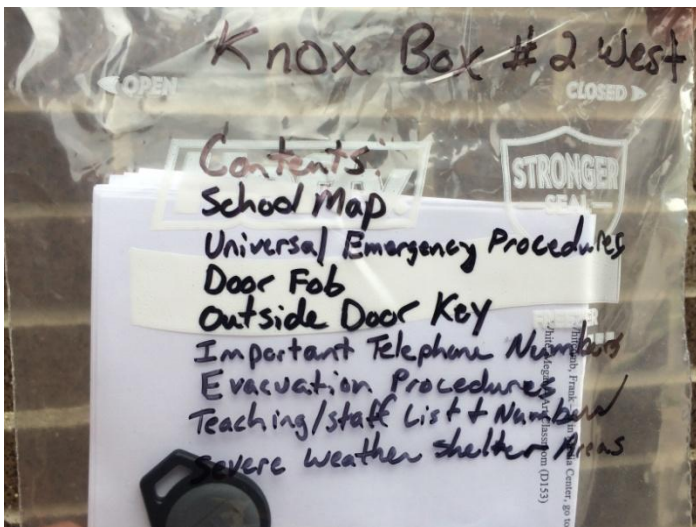 Knox Box # 2 West
OPEN
CLOSED
Contents:
STRONGER
SEAL
School Map
Universal Emergency Procedures
Door Fob
Outside Door Key
Important Telephone Numbers
Evacuation Procedures
Teaching/staff List + Numbers
Severe Weather Shelter Areas
Frank
Center, go to
Classroom (D153)